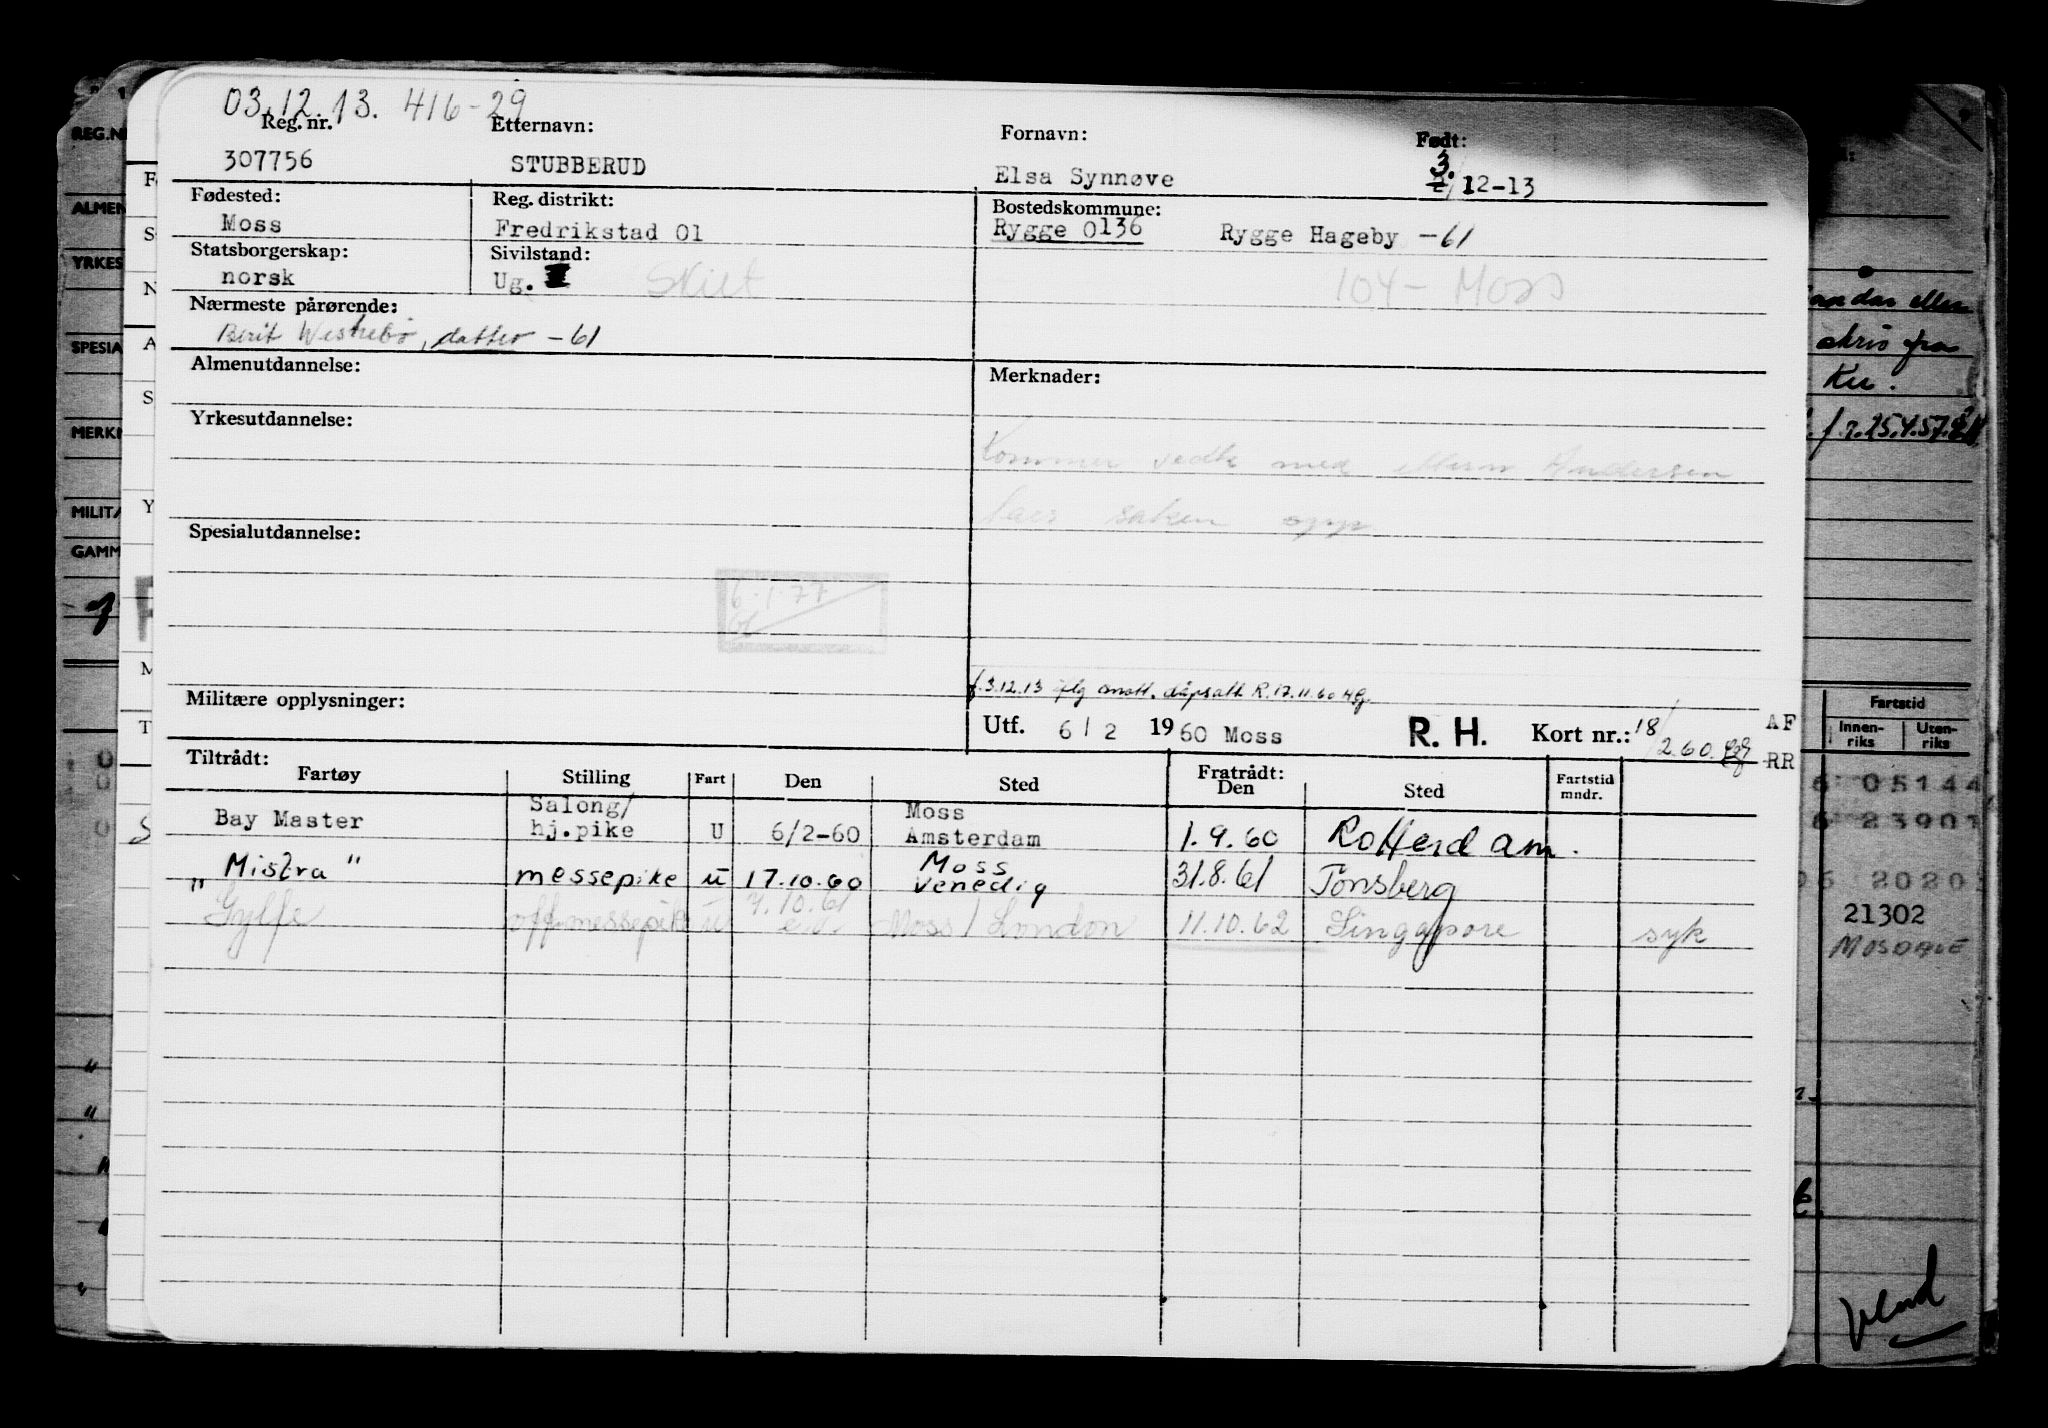 03.12.13. 416-29
Reg. nr. Etternavn: Fornavn: Født:
307756 STUBBERUD Elsa Synnøve 3. 12-13
Fødested: Reg. distrikt: Bostedskommune:
Moss Fredrikstad 01 Rygge 0136 Rygge Hageby -61
Statsborgerskap: Sivilstand:
norsk Ug. Skilt 104 - Moss
Nærmeste pårørende:
Berit Westrebø, datter -61
Almenutdannelse: Merknader:
Yrkesutdannelse:
Kommer vedk med ettern Andersen
taes saken opp
Spesialutdannelse:
6.1.77
f. 3.12.13 iflg mott. dåpsatt. R. 17.11.60 Hg
Militære opplysninger:
Utf. 6/2 1960 Moss R. H. Kort nr.: 18/2.60.
Tiltrådt: Fratrådt:
Fartøy Stilling Fart Den Sted Den Sted Fartstid mndr.
Bay Master Salong/ hj.pike U 6/2-60 Moss Amsterdam 1.9.60 Rotterdam.
"Mistra" messepike u 17.10.60 Moss Venedig 31.8.61 Tønsberg
Gylfe off.messepike u 7.10.61 Moss / London 11.10.62 Singapore syk
REG.N
ALMEN
YRKES
SPESIA
MERKN
MILITÆ
GAMM
skriv fra
Ku.
25.4.57
Fartstid
Innen-riks Uten-riks
AF
RR
05144
23901
2020
21302
MOSDALE
Vend